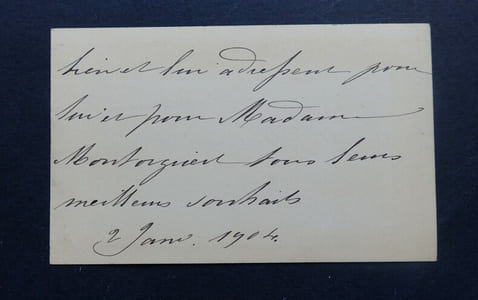 bien et lui adressent pour
lui et pour Madame
Montorgueil tous leurs
meilleurs souhaits
2 Janv. 1904.